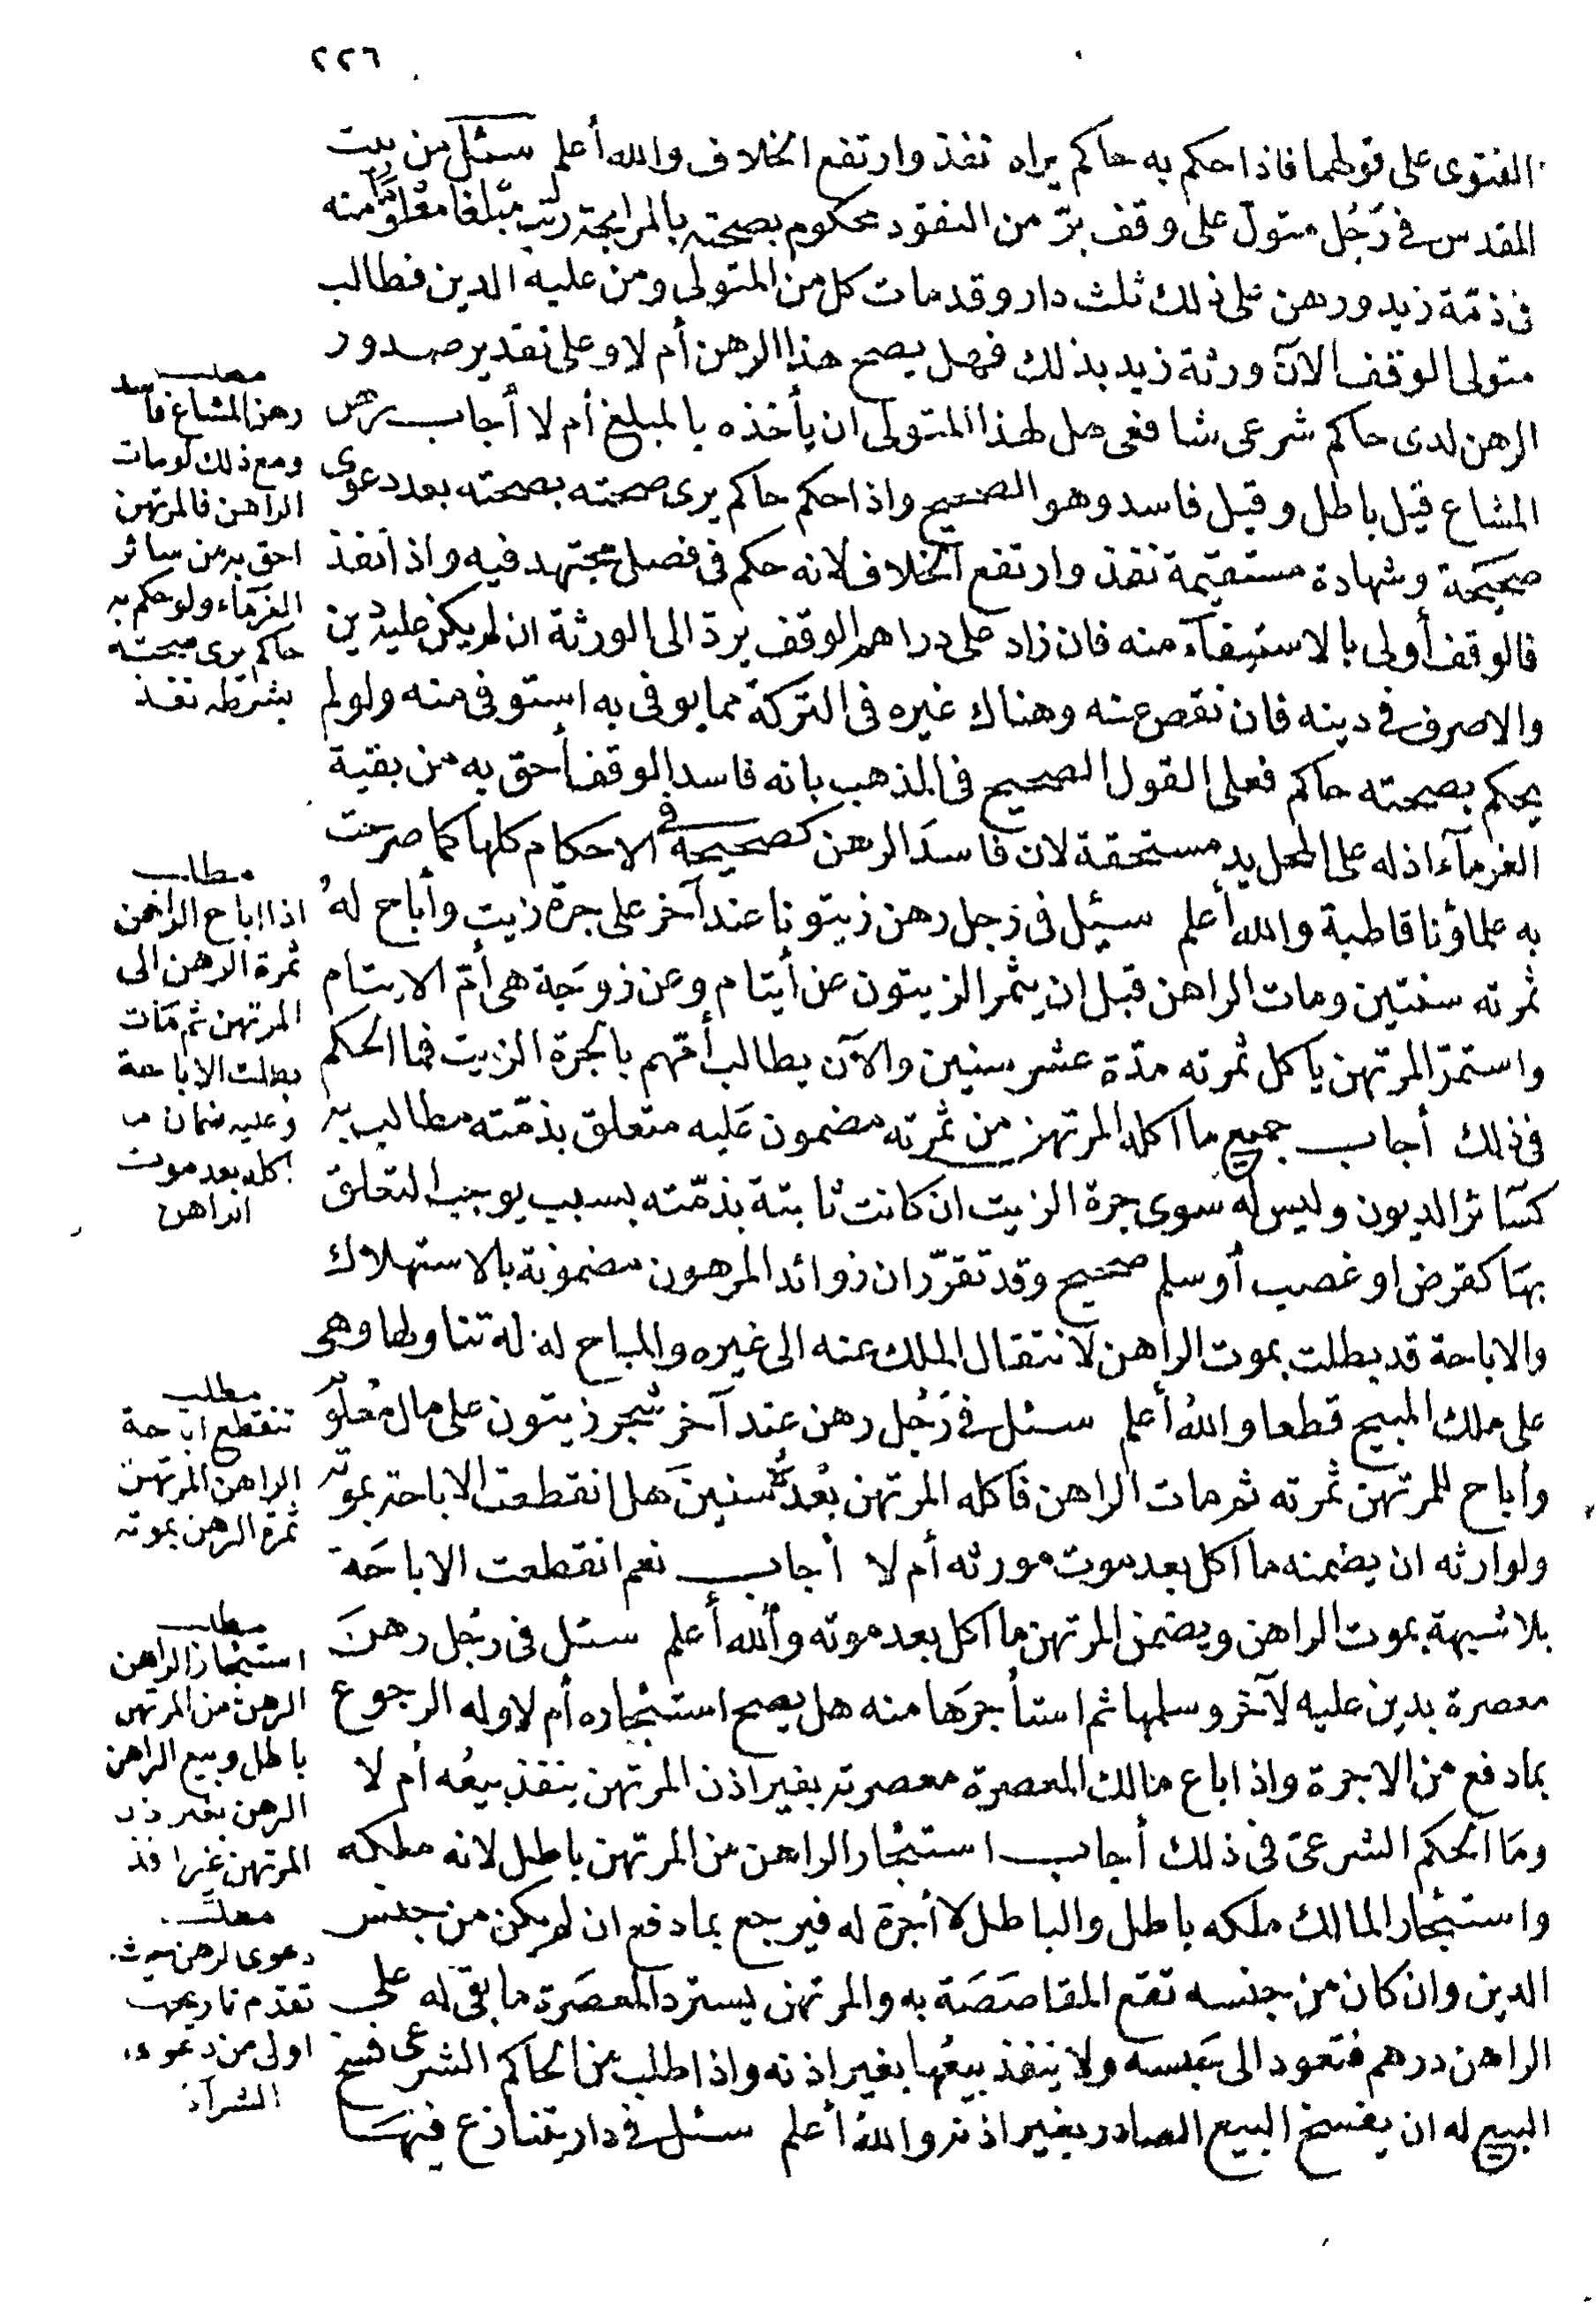 ٢٢٦
الفتوى على قولهما فاذا حكم به حاكم يراه نفذ وارتفع الخلاف والله أعلم سئل من بيت
المقدس في رَجُل متول على وقف برّ من النقود محكوم بصحته بالمرابحة رتب مبلغا معلوما منه
فى ذمّة زيد ورهن على ذلك ثلث دار وقد مات كل من المتولى ومن عليه الدين فطالب
متولى الوقف الآن ورثة زيد بذلك فهل يصح هذا الرهن أم لا وعلى تقدير صدور
الرهن لدى حاكم شرعى شافعى هل لهذا المتولى ان يأخذه بالمبلغ أم لا أجاب رهن
المشاع قيل باطل وقيل فاسد وهو الصحيح واذا حكم حاكم يرى صحته بصحته بعد دعوى
صحيحة وشهادة مستقيمة نفذ وارتفع الخلاف لانه حكم فى فصل مجتهد فيه واذا نفذ
فالوقف أولى بالاستيفآء منه فان زاد على دراهم الوقف يردّ الى الورثة ان لم يكن عليه دين
والاصرف في دينه فان نقص عنه وهناك غيره فى التركة مما يوفى به استوفى منه ولو لم
يحكم بصحته حاكم فعلى القول الصحيح فى المذهب بانه فاسد الوقف أحق به من بقية
الغرمآء اذ له على المحل يد مستحقة لان فاسدَ الرهن كصحيحه فى الاحكام كلها كما صرحت
به علماؤنا قاطبة والله أعلم سئل فى رجل رهن زيتونا عند آخر على جرة زيت وأباح لهُ
ثمرته سنتين ومات الراهن قبل ان يثمر الزيتون عن أيتام وعن زوجَة هى أمّ الايتام
واستمرّ المرتهن ياكل ثمرته مدّة عشر سنين والآن يطالب أمّهم بالجرة الزيت فما الحكم
فى ذلك أجاب جميع ما اكله المرتهن من ثمرته مضمون عَليه متعلق بذمّته مطالب به
كسَائر الديون وليس له سوى جرة الزيت ان كانت ثابتة بذمّته بسبب يوجب التعلق
بهَا كقرض او غصب أو سلم صحيح وقد تقرّر ان زوائد المرهون مضمونة بالاستهلاك
والاباحة قد بطلت بموت الراهن لانتقال الملك عنه الى غيره والمباح له له تناولها وهى
على ملك المبيح قطعا واللهُ أعلم سئل في رَجُل رهن عند آخر شجر زيتون على مال معلوم
وأباح للمرتهن ثمرته ثم مات الراهن فآكله المرتهن بعدُ سنينَ هل انقطعت الاباحة بموته
ولوارثه ان يضمنه ما اكل بعد موت مورثه أم لا أجاب نعم انقطعت الاباحَة
بلا شبهة بموت الراهن ويضمن المرتهن ما اكل بعد موته والله أعلم سئل فى رجُل رهنَ
معصرة بدين عليه لآخر وسلمها ثم استأجرَها منه هل يصح استئجاره أم لا وله الرجوع
بما دفع من الاجرة واذا باع مالك المعصرة معصرته بغير اذن المرتهن ينفذ بيعُه أم لا
ومَا الحكم الشرعىّ فى ذلك أجاب استئجار الراهن من المرتهن باطل لانه ملكه
واستئجار المالك ملكه باطل والباطل لا أجرة له فيرجع بما دفع ان لم يكن من جنس
الدين وان كان من جنسه تقع المقاصَصَة به والمرتهن يسترد المعصَرة ما بقى له على
الراهن درهم فتعود الى حبسه ولا ينفذ بيعُها بغير اذنه واذا طلب من الحاكم الشرعى فسخ
البيع له ان يفسخ البيع الصادر بغير اذنه واللهُ أعلم سئل في دار يتنازع فيهَا
مطلب
رهن المشاع فاسد
ومع ذلك لو مات
الراهن فالمرتهن
احق به من سائر
الغرمآء ولو حكم به
حاكم يرى صحته
بشرطه نفذ
مطلب
اذا اباح الراهن
ثمرة الرهن الى
المرتهن ثم مَات
بطلت الاباحة
وعليه ضمان ما
اكله بعد موت
الراهن
مطلب
تنقطع اباحة
الراهن المرتهن
ثمرة الرهن بموته
مطلب
استئجار الراهن
الرهن من المرتهن
باطل وبيع الراهن
الرهن بغير اذن
المرتهن غير نافذ
مطلب
دعوى الرهن حيث
تقدّم تاريخها
اولى من دعوى
الشرآء